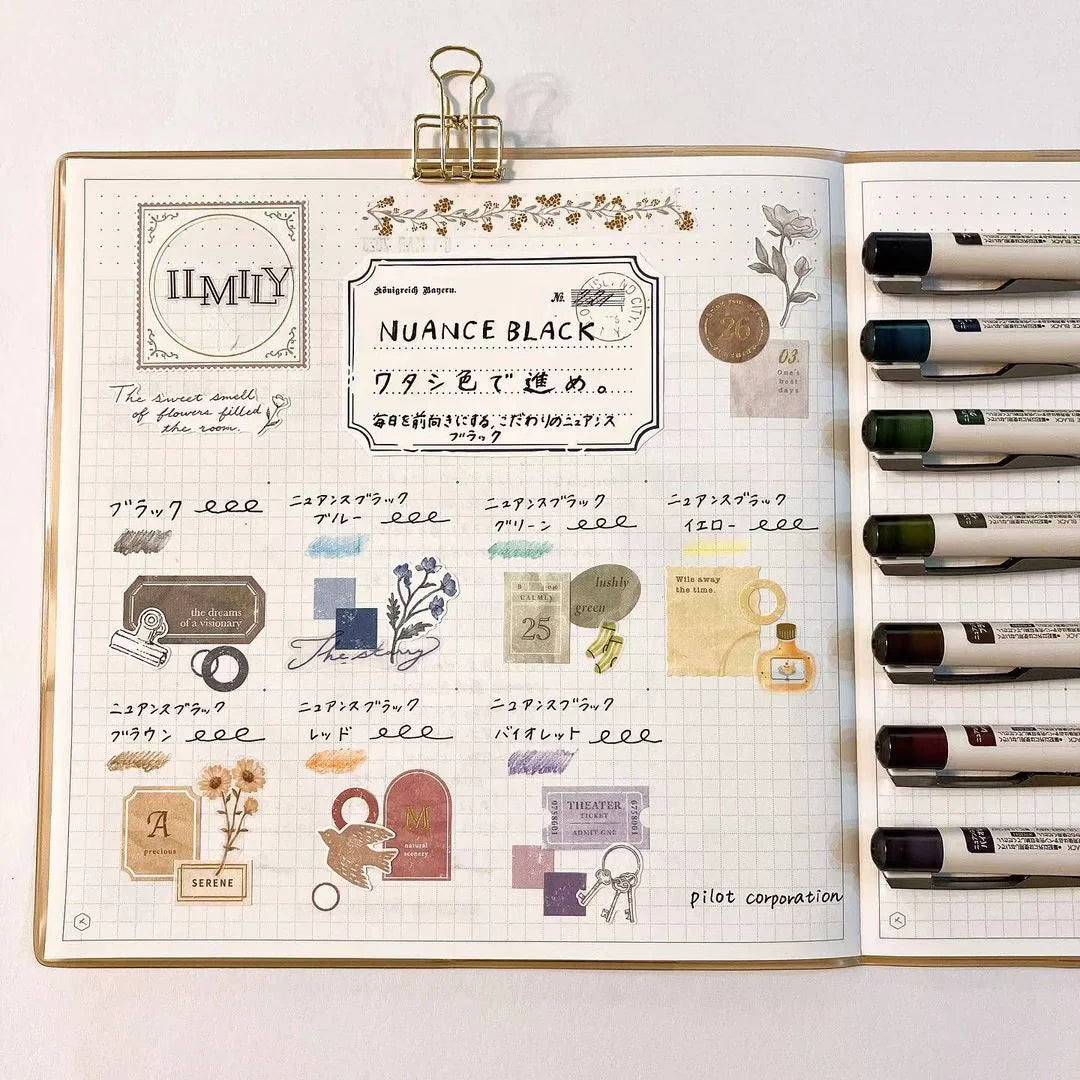 ILMILY
The sweet smell
of flowers filled
the room.
Königreich Bayern.
No.
NUANCE BLACK
ワタシ色で進め。
毎日を前向きにする、こだわりのニュアンス
ブラック
26
03.
One's
best
days
ブラック
ニュアンスブラック
ブルー
ニュアンスブラック
グリーン
ニュアンスブラック
イエロー
the dreams
of a visionary
The story
CALMLY
25
lushly
green
Wile away
the time.
ニュアンスブラック
ブラウン
ニュアンスブラック
レッド
ニュアンスブラック
バイオレット
A
precious
SERENE
M
natural
scenery
THEATER
TICKET
ADMIT ONE
0758601
0758601
pilot corporation